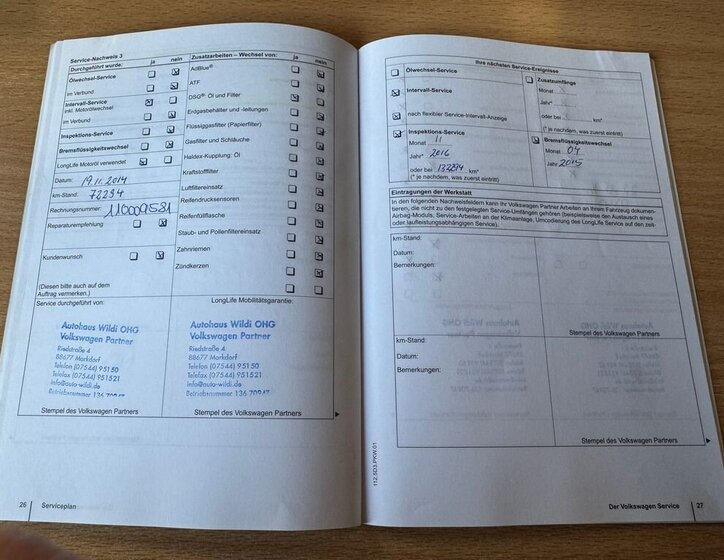 Service-Nachweis 3
Durchgeführt wurde: ja nein
Ölwechsel-Service
im Verbund
Intervall-Service
inkl. Motorölwechsel
im Verbund
Inspektions-Service
Bremsflüssigkeitswechsel
LongLife Motoröl verwendet
Datum: 19.11.2014
km-Stand: 72294
Rechnungsnummer: 110009531
Reparaturempfehlung
Kundenwunsch
(Diesen bitte auch auf dem
Auftrag vermerken.)
Service durchgeführt von:
Autohaus Wildi OHG
Volkswagen Partner
Riedstraße 4
88677 Markdorf
Telefon (07544) 95150
Telefax (07544) 951521
info@auto-wildi.de
Betriebsnummer 136
Stempel des Volkswagen Partners
Zusatzarbeiten – Wechsel von: ja nein
AdBlue®
ATF
DSG®: Öl und Filter
Erdgasbehälter und -leitungen
Flüssiggasfilter (Papierfilter)
Gasfilter und Schläuche
Haldex-Kupplung: Öl
Kraftstofffilter
Luftfiltereinsatz
Reifendrucksensoren
Reifenfüllflasche
Staub- und Pollenfiltereinsatz
Zahnriemen
Zündkerzen
LongLife Mobilitätsgarantie:
Autohaus Wildi OHG
Volkswagen Partner
Riedstraße 4
88677 Markdorf
Telefon (07544) 95150
Telefax (07544) 951521
info@auto-wildi.de
Betriebsnummer 136
Stempel des Volkswagen Partners
26 Serviceplan
Ihre nächsten Service-Ereignisse
Ölwechsel-Service
Intervall-Service
nach flexibler Service-Intervall-Anzeige
Inspektions-Service
Monat 11
Jahr* 2016
oder bei 132294 km*
(* je nachdem, was zuerst eintritt)
Zusatzumfänge
Monat
Jahr*
oder bei km*
(* je nachdem, was zuerst eintritt)
Bremsflüssigkeitswechsel
Monat 04
Jahr 2015
Eintragungen der Werkstatt
In den folgenden Nachweisfeldern kann Ihr Volkswagen Partner Arbeiten an Ihrem Fahrzeug dokumen-
tieren, die nicht zu den festgelegten Service-Umfängen gehören (beispielsweise den Austausch eines
Airbag-Moduls, Service-Arbeiten an der Klimaanlage, Umcodierung des LongLife Service auf den zeit-
oder laufleistungsabhängigen Service).
km-Stand:
Datum:
Bemerkungen:
Stempel des Volkswagen Partners
km-Stand:
Datum:
Bemerkungen:
Stempel des Volkswagen Partners
112.5D3.PKW.01
Der Volkswagen Service 27